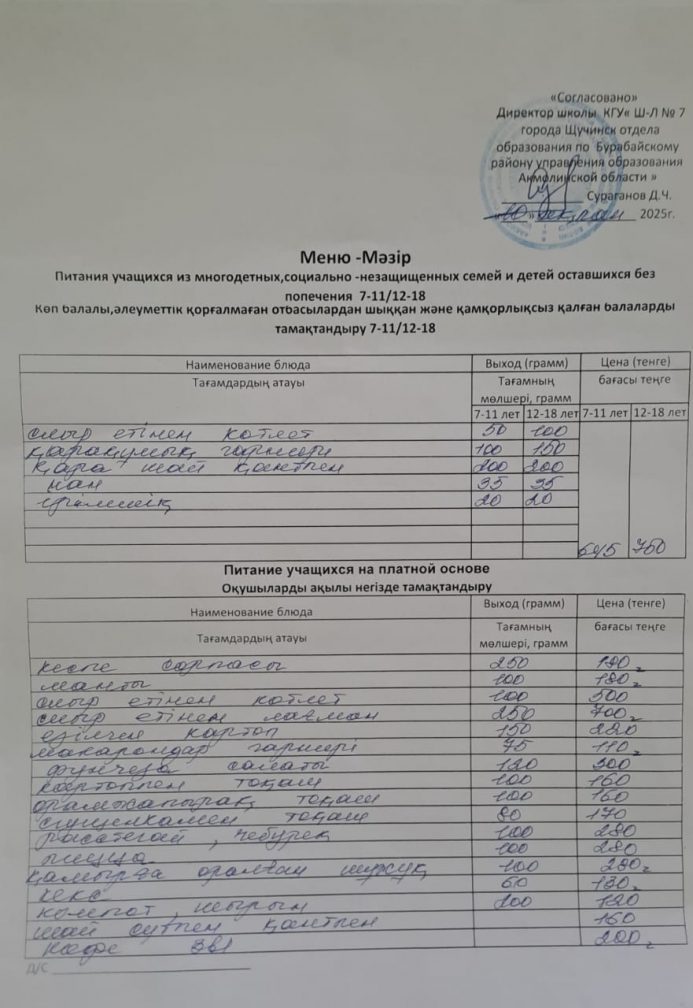 «Согласовано»
Директор школы КГУ« Ш-Л № 7
города Щучинск отдела
образования по Бурабайскому
району управления образования
Акмолинской области »
Сураганов Д.Ч.
«10» 2025г.
Меню -Мәзір
Питания учащихся из многодетных,социально -незащищенных семей и детей оставшихся без
попечения 7-11/12-18
Көп балалы,әлеуметтік қорғалмаған отбасылардан шыққан және қамқорлықсыз қалған балаларды
тамақтандыру 7-11/12-18
Наименование блюда Выход (грамм) Цена (тенге)
Тағамдардың атауы Тағамның бағасы теңге
мөлшері, грамм
7-11 лет 12-18 лет 7-11 лет 12-18 лет
сиыр етінен котлет 50 100
қарақұмық гарнері 100 150
Қара шай қантпен 200 200
нан 35 35
ірімшік 20 20
645 750
Питание учащихся на платной основе
Оқушыларды ақылы негізде тамақтандыру
Наименование блюда Выход (грамм) Цена (тенге)
Тағамдардың атауы Тағамның бағасы теңге
мөлшері, грамм
кеспе сорпасы 250
манты 100 180
сиыр етінен котлет 100 500
сиыр етінен лагман 250 700
езілген картоп 150 220
макарондар гарнері 75 110
фунчеза салаты 120 300
картоппен тоқаш 100 160
орамжапырақ тоқаш 100 160
тоқаш 80 170
чебурек 100 280
пицца 100 280
қамырда оралған шұжұқ 100
кекс 60 130
компот , шырын 200 120
шай сүтпен қантпен 160
кофе 3в1 200
Д/С